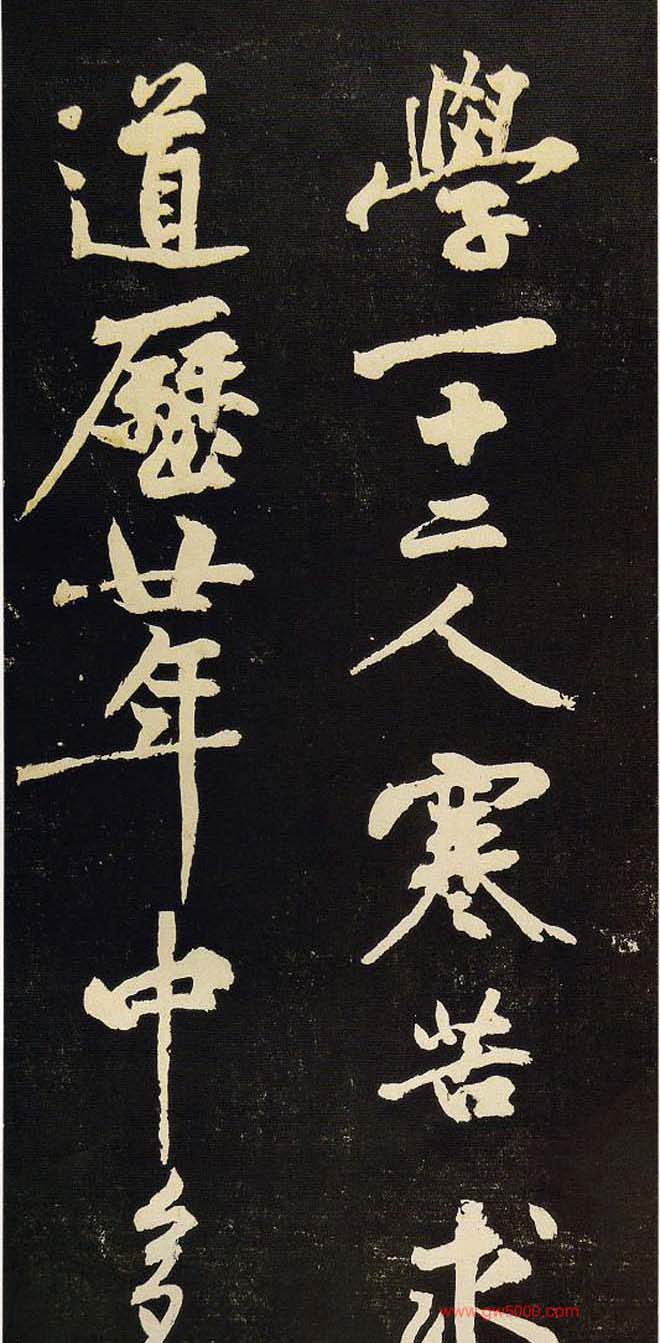 學一十二人寒苦求
道歷廿年中多
www.gw5000.com